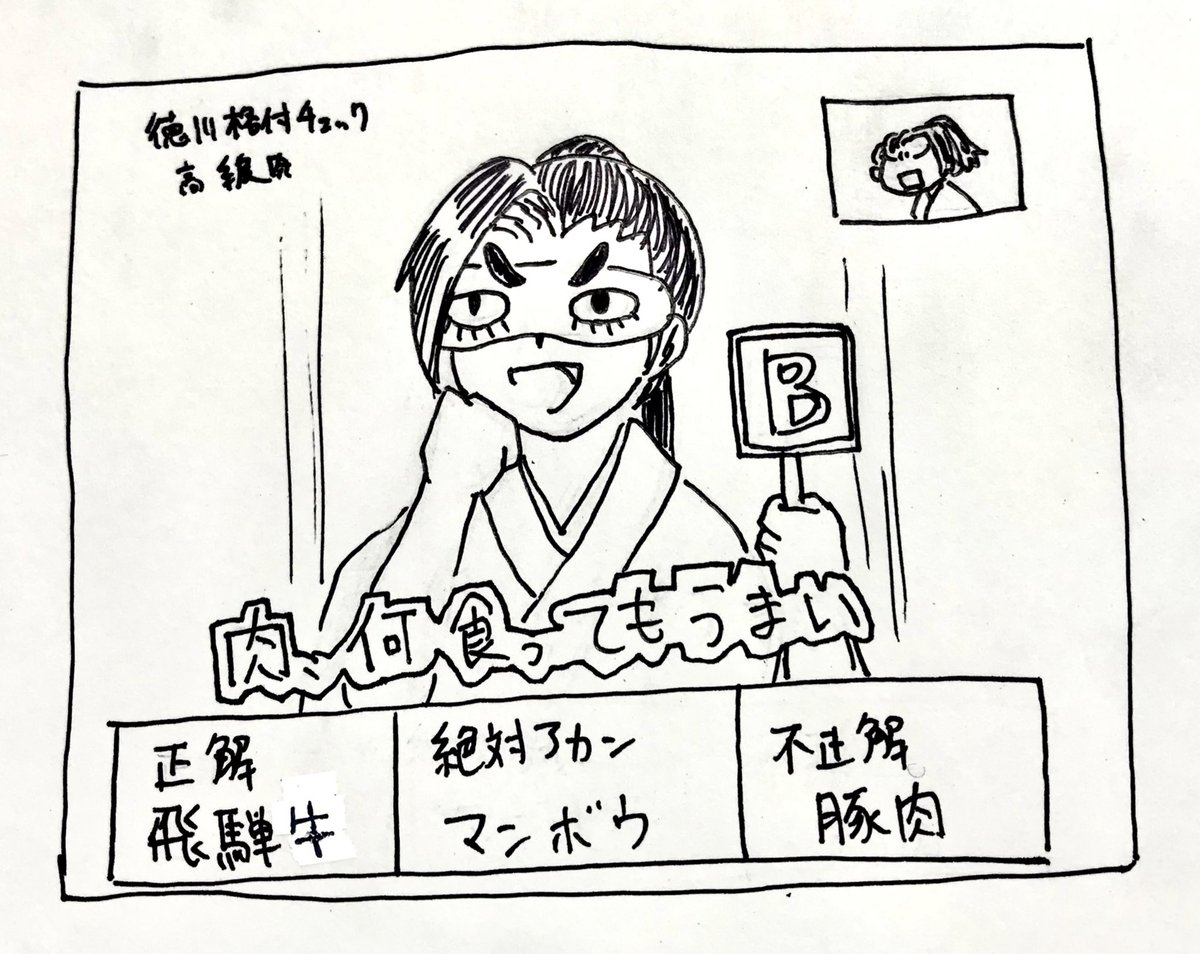 徳川格付チェック
高級
B
肉、何食ってもうまい
正解
飛騨牛
絶対アカン
マンボウ
不正解
豚肉